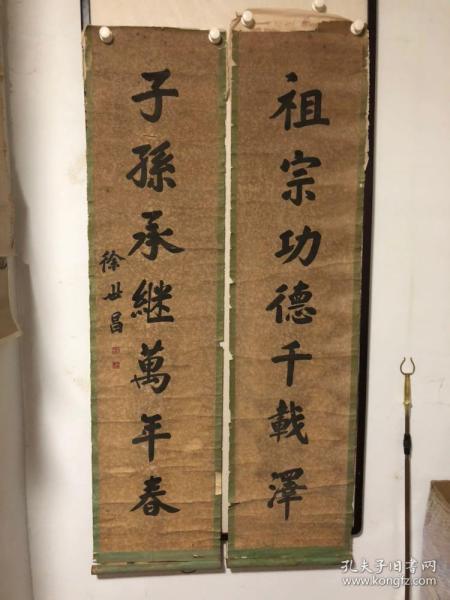 祖宗功德千戟澤
子孫承継萬年春
徐世昌
孔夫子旧书网
www.kongfz.com